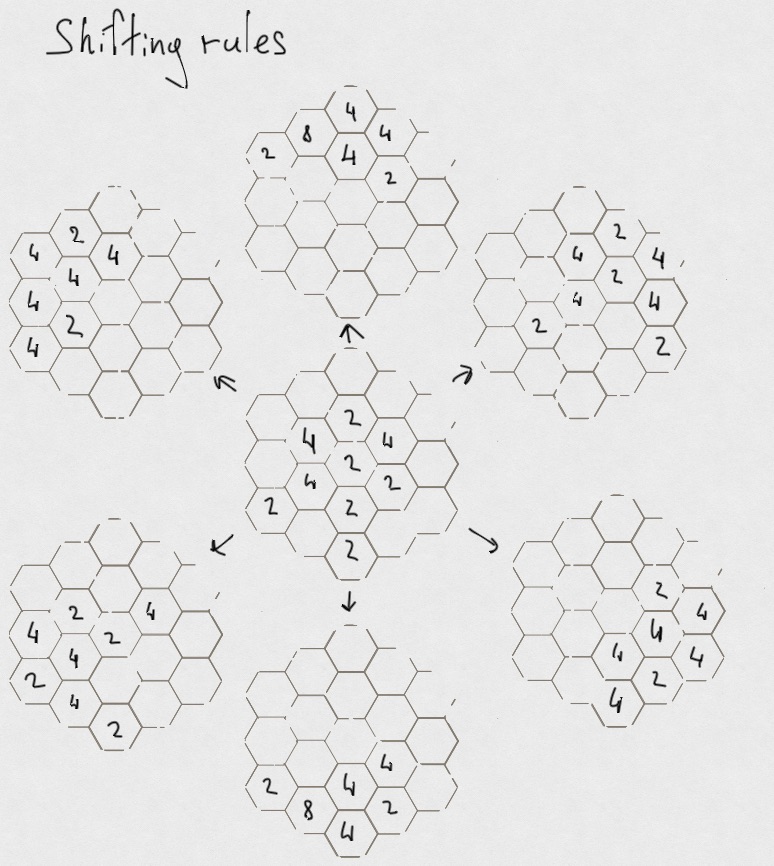 Shifting rules
4
8 4
2 4
2
2
4 4
4
4
2
4
2
4 4
2
4 4
2
2
2
4 4
2
4 2
2 2
2
2 4
4 2
4
2
4
2
2
4
4
4 4
2
4
4
2 4
8 2
4